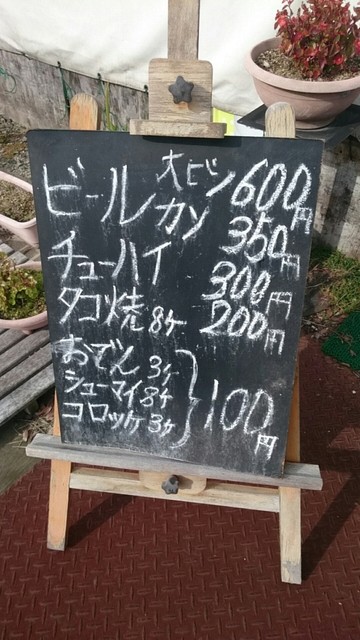 ビール 大ビン 600円
カン 350円
チューハイ 300円
タコ焼 8ヶ 200円
おでん 3ヶ
シューマイ 8ヶ 100円
コロッケ 3ヶ